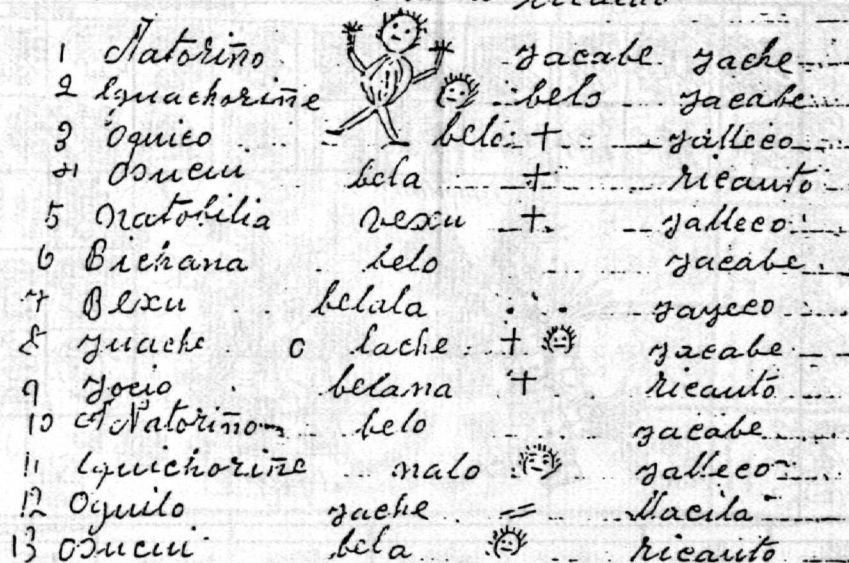 1 Natoriño yacabe yache
2 Lguachoriñe belo yacabe
3 Oquico belo + yalleco
4 Osucui bela + ricauto
5 Natobilia vexu + yalleco
6 Bichana belo yacabe
7 Bexu belala yayeco
8 Yuache o lache + yacabe
9 Yocio belana + ricauto
10 Natoriño belo yacabe
11 Lguichoriñe nalo yalleco
12 Oquilo yache = llacila
13 Osucui bela ricauto